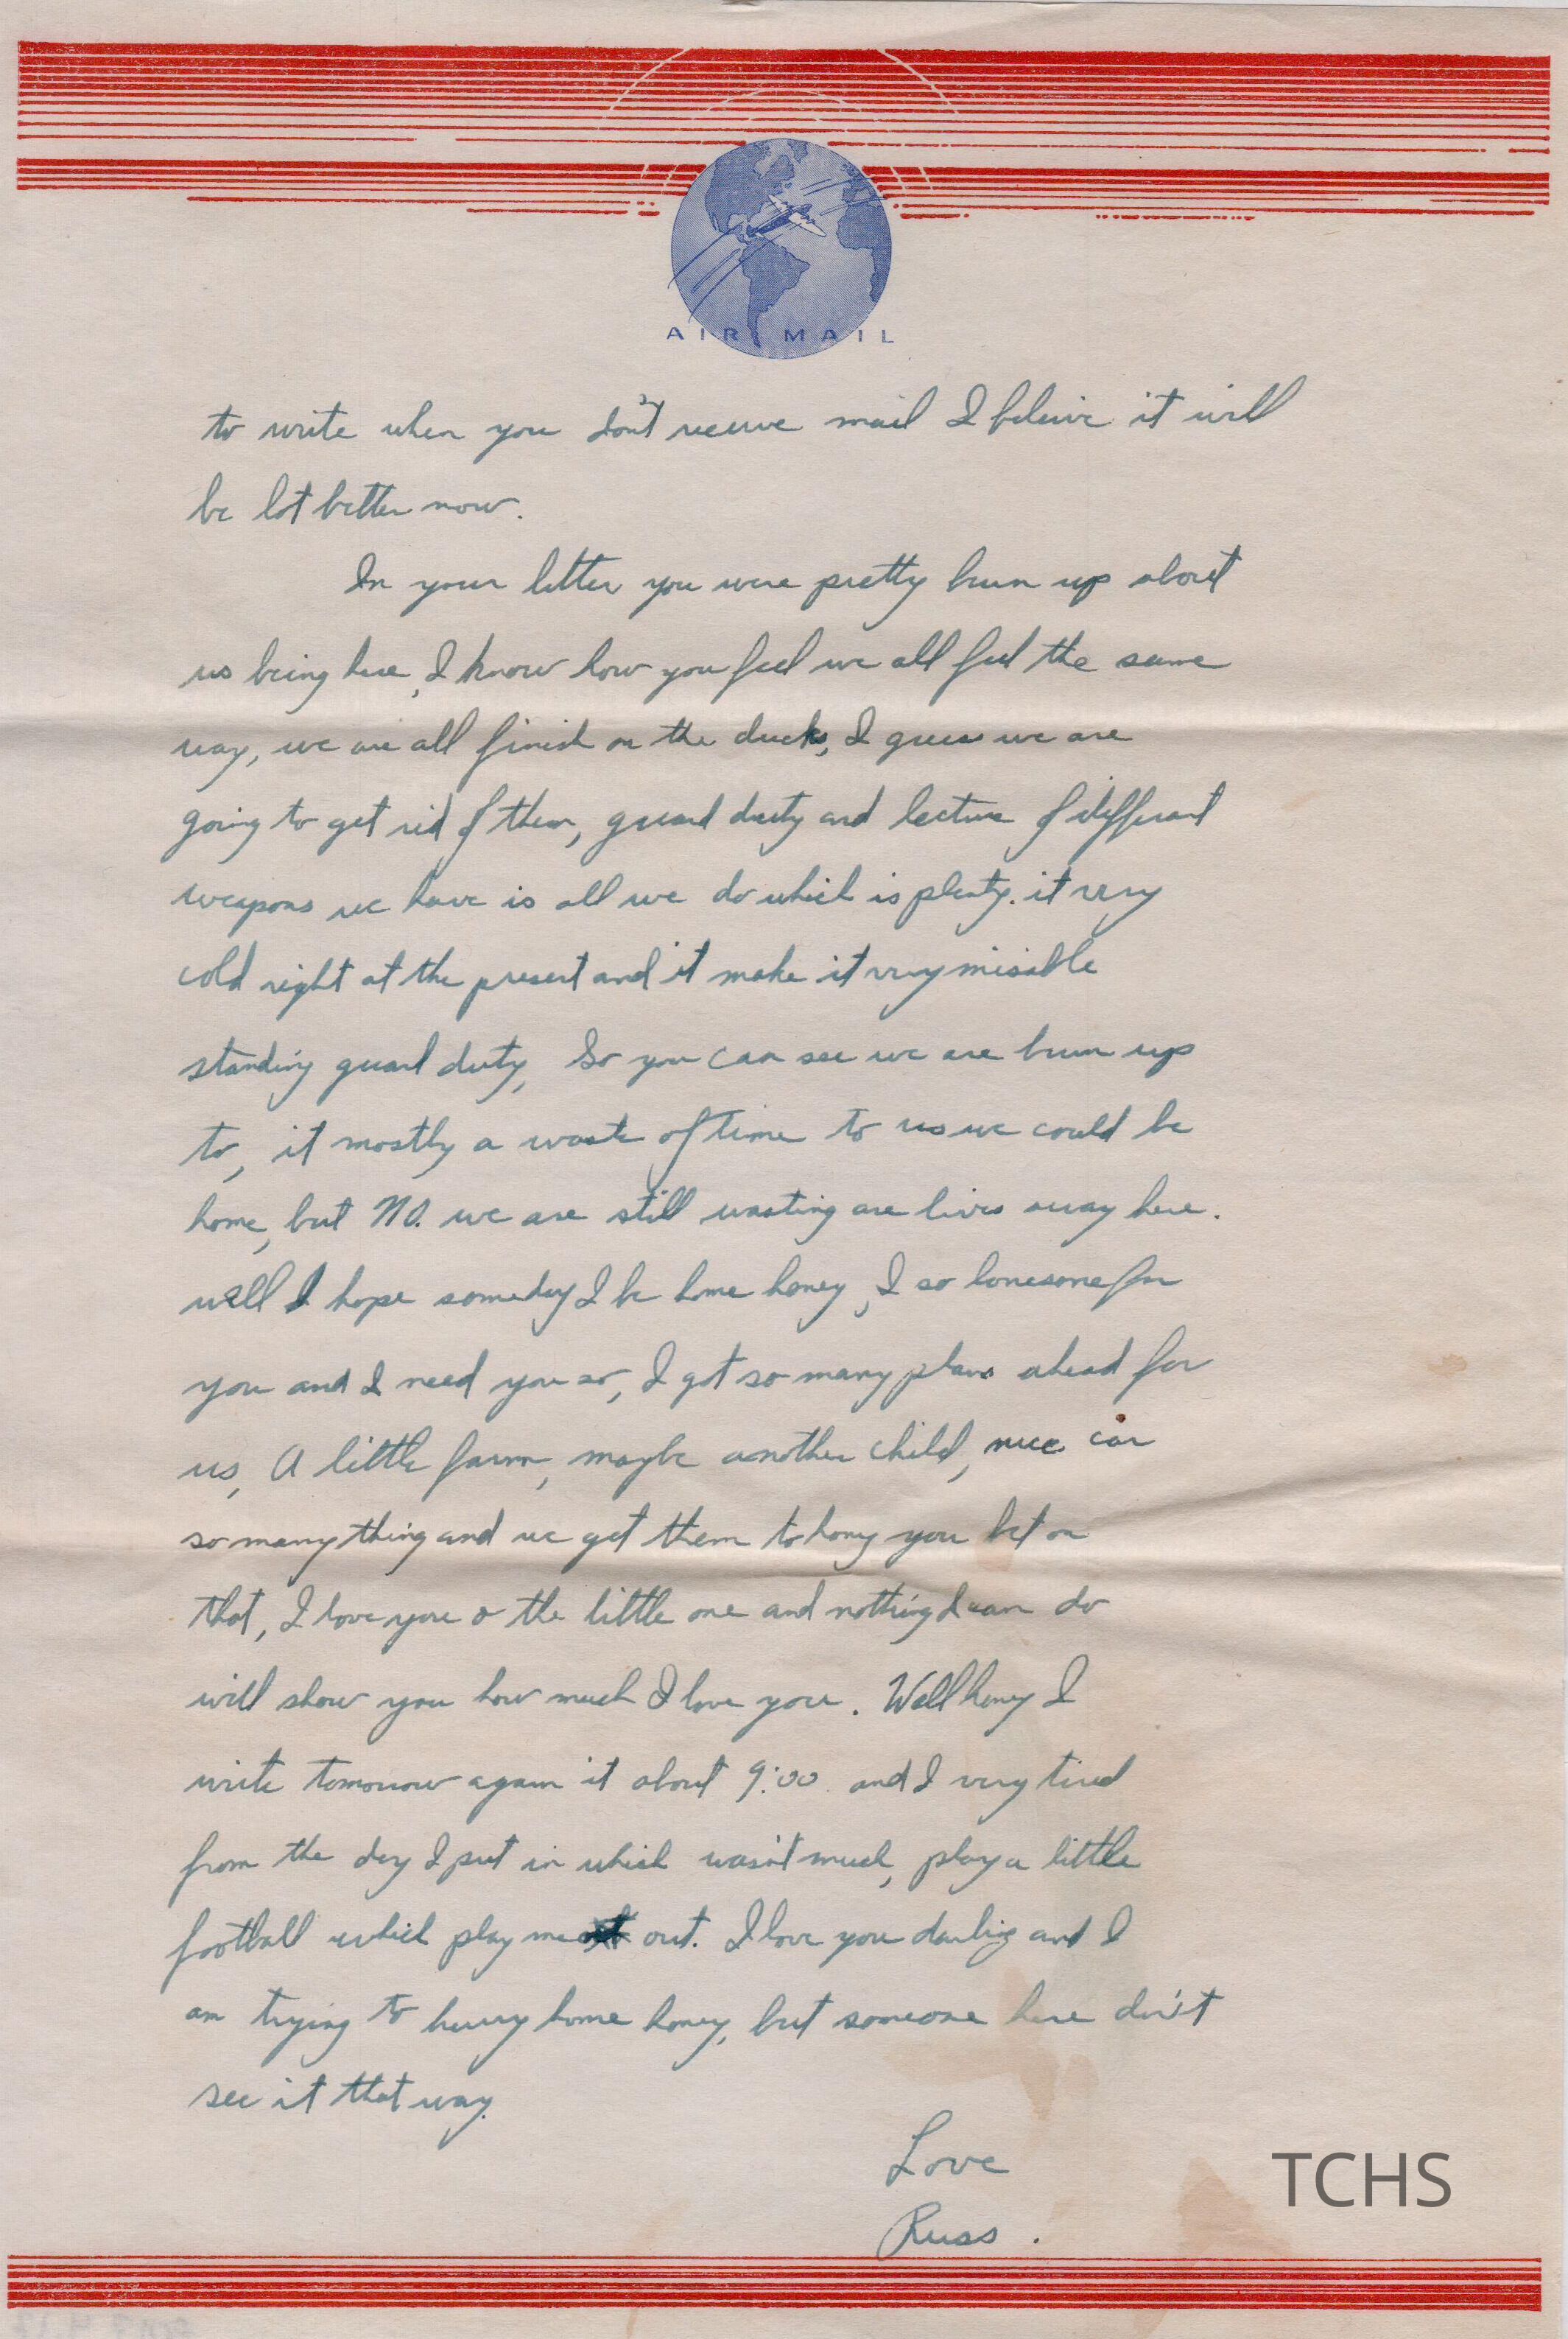 AIR MAIL
to write when you don't receive mail I beleive it will
be lot better now.
In your letter you were pretty burn up about
us being here, I know how you feel we all feel the same
way, we are all finish on the ducks, I guess we are
going to get rid of them, guard duty and lecture of different
weapons we have is all we do which is plenty. it very
cold right at the present and it make it very misable
standing guard duty, So you can see we are burn up
to, it mostly a waste of time to us we could be
home, but NO. we are still wasting are lives away here.
well I hope someday I be home honey, I so lonesome for
you and I need you so, I got so many plans ahead for
us, A little farm, maybe another child, nice car
so many thing and we get them to hony you bet on
that, I love you & the little one and nothing I can do
will show you how much I love you. Well honey I
write tomorrow again it about 9:00 and I very tired
from the day I put in which wasn't much, play a little
football which play me out. I love you darling and I
am trying to hurry home honey, but someone here don't
see it that way.
Love
Russ.
TCHS